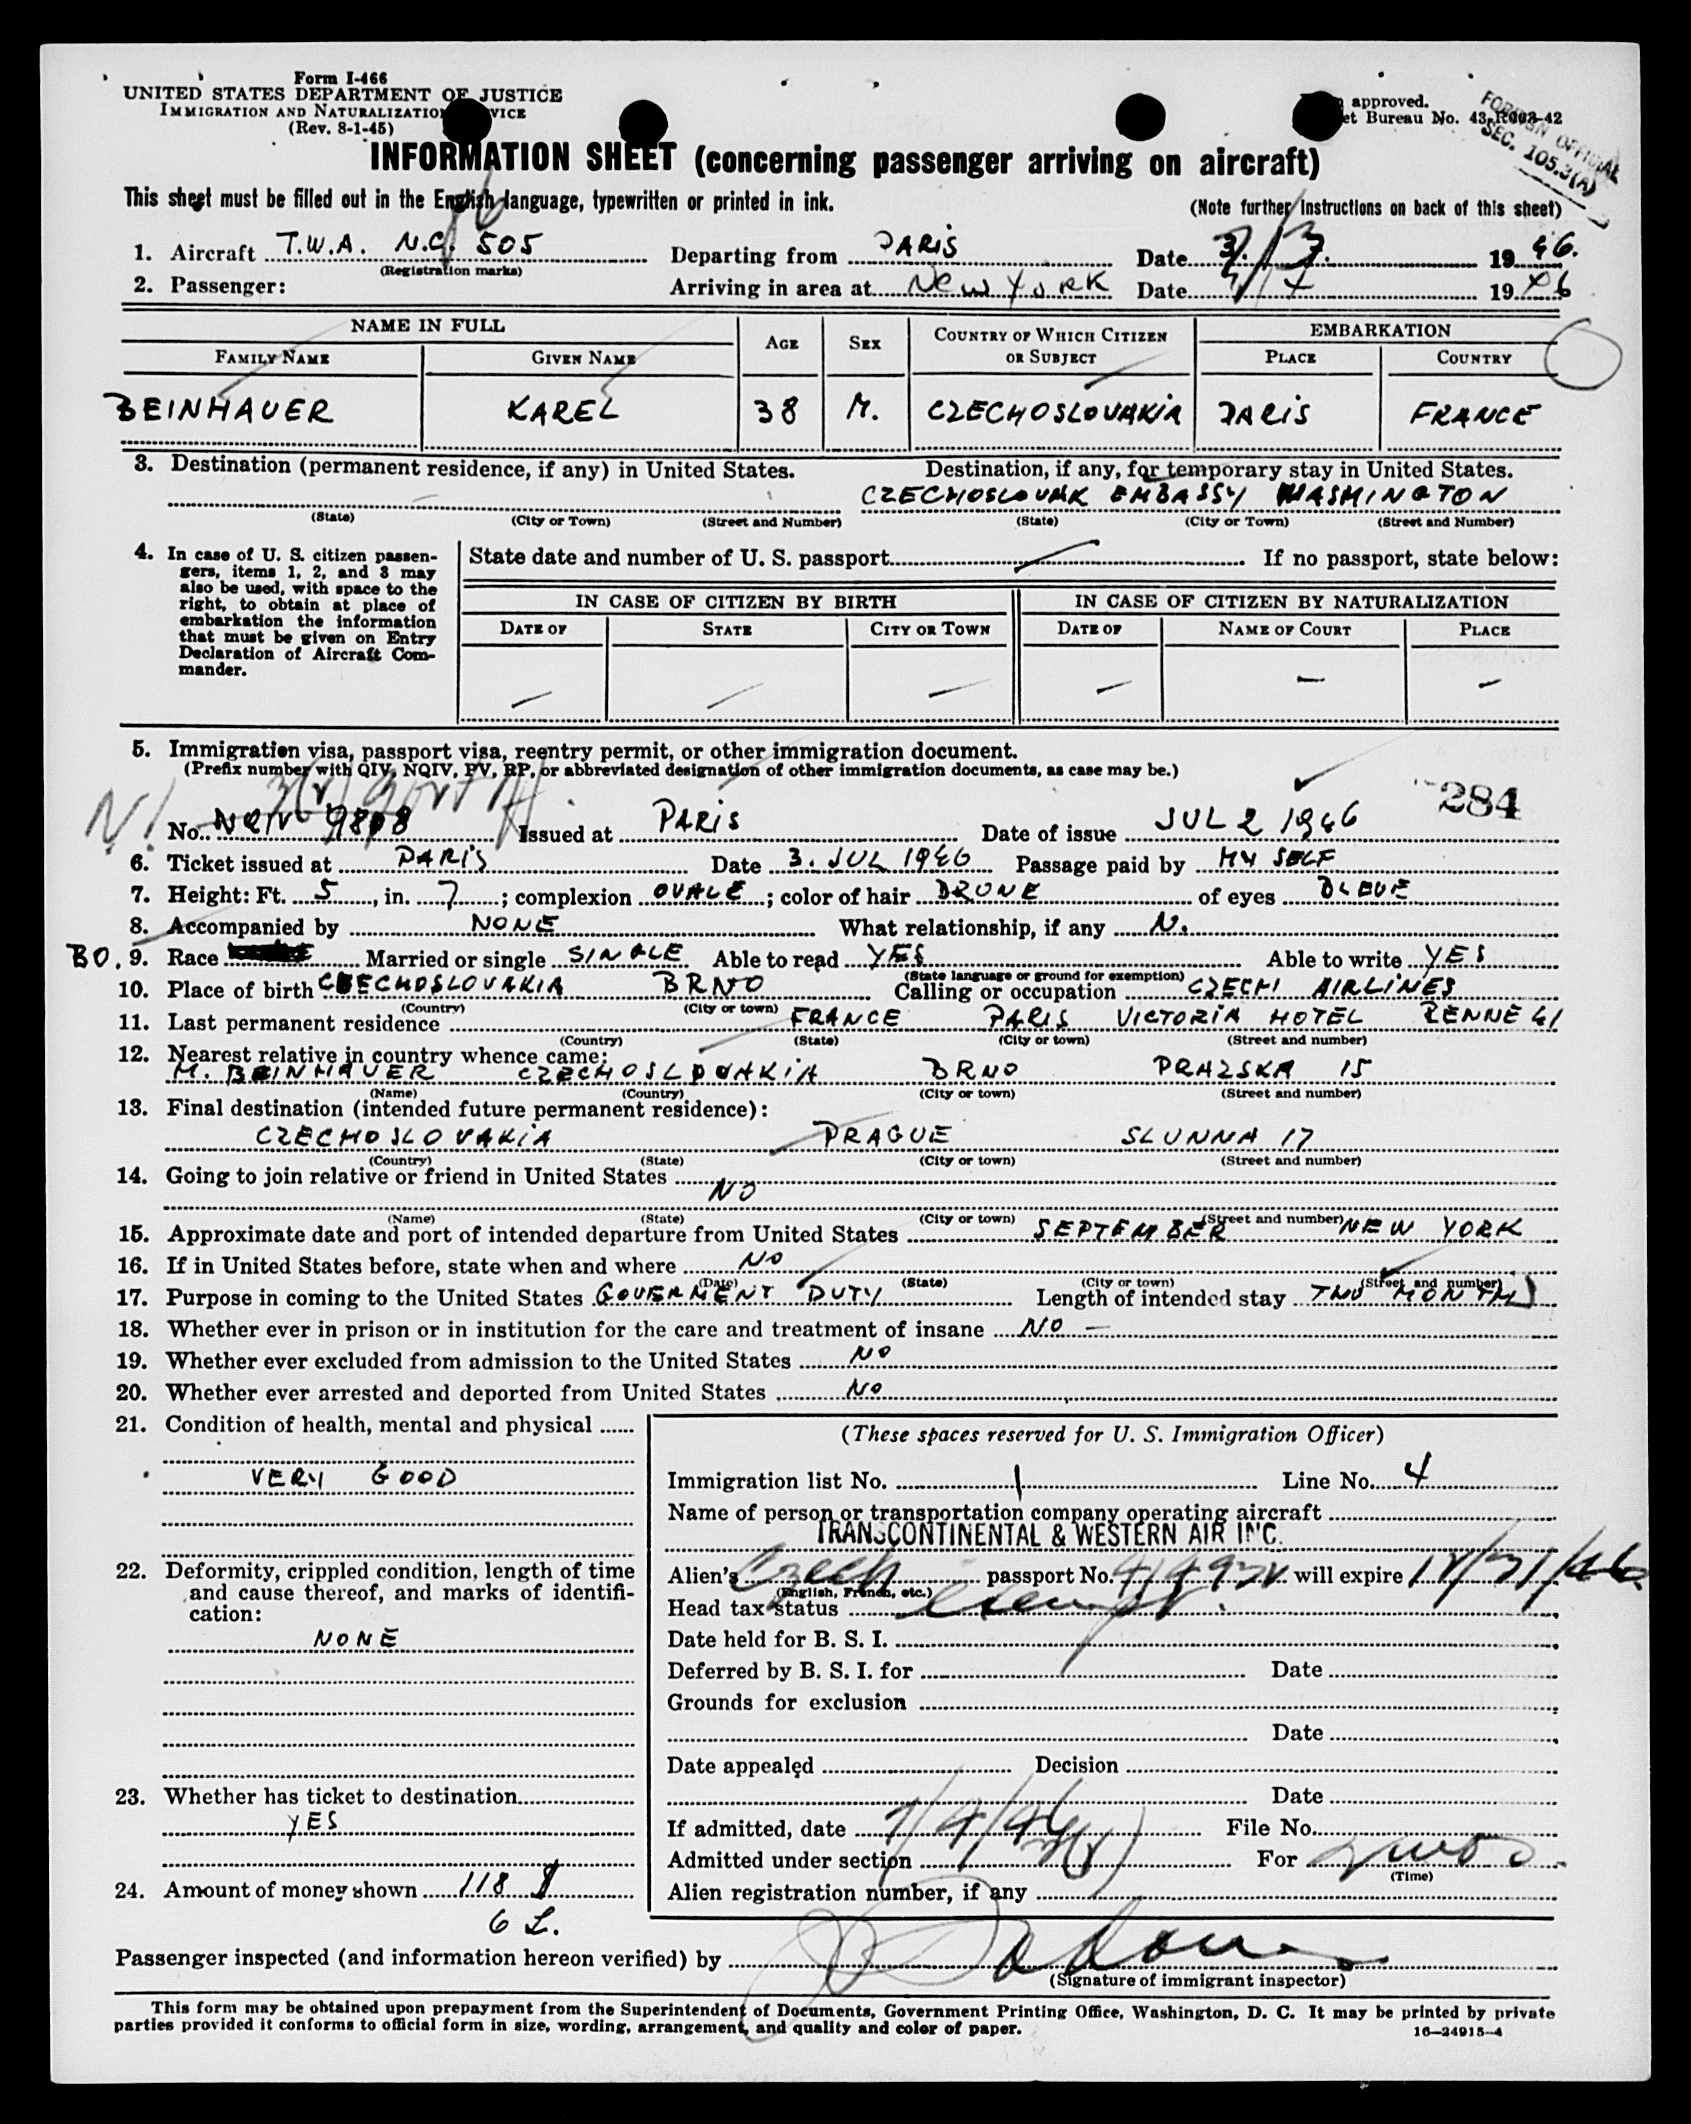 Form I-466
UNITED STATES DEPARTMENT OF JUSTICE
IMMIGRATION AND NATURALIZATION SERVICE
(Rev. 8-1-45)
approved.
et Bureau No. 43-R003-42
FOREIGN OFFICIAL
SEC. 105.3(A)
INFORMATION SHEET (concerning passenger arriving on aircraft)
This sheet must be filled out in the English language, typewritten or printed in ink.
(Note further instructions on back of this sheet)
1. Aircraft T.W.A. N.C. 505 Departing from PARIS Date 3/7. 1946.
(Registration marks)
2. Passenger: Arriving in area at New York Date 7/4 1946
NAME IN FULL AGE SEX COUNTRY OF WHICH CITIZEN OR SUBJECT EMBARKATION
FAMILY NAME GIVEN NAME PLACE COUNTRY
BEINHAUER KAREL 38 M. CZECHOSLOVAKIA PARIS FRANCE
3. Destination (permanent residence, if any) in United States. Destination, if any, for temporary stay in United States.
CZECHOSLOVAK EMBASSY WASHINGTON
(State) (City or Town) (Street and Number) (State) (City or Town) (Street and Number)
4. In case of U. S. citizen passengers, items 1, 2, and 3 may also be used, with space to the right, to obtain at place of embarkation the information that must be given on Entry Declaration of Aircraft Commander.
State date and number of U. S. passport If no passport, state below:
IN CASE OF CITIZEN BY BIRTH IN CASE OF CITIZEN BY NATURALIZATION
DATE OF STATE CITY OR TOWN DATE OF NAME OF COURT PLACE
5. Immigration visa, passport visa, reentry permit, or other immigration document.
(Prefix number with QIV, NQIV, PV, RP, or abbreviated designation of other immigration documents, as case may be.)
284
No. NQIV 9808 Issued at PARIS Date of issue JUL 2 1946
6. Ticket issued at PARIS Date 3. JUL 1946 Passage paid by MY SELF
7. Height: Ft. 5, in. 7; complexion OVALE; color of hair BRONE of eyes BLEUE
8. Accompanied by NONE What relationship, if any N.
BO. 9. Race Married or single SINGLE Able to read YES Able to write YES
(State language or ground for exemption)
10. Place of birth CZECHOSLOVAKIA BRNO Calling or occupation CZECH AIRLINES
(Country) (City or town)
11. Last permanent residence FRANCE PARIS VICTORIA HOTEL RENNE 41
(Country) (State) (City or town) (Street and number)
12. Nearest relative in country whence came:
M. BEINHAUER CZECHOSLOVAKIA BRNO PRAZSKA 15
(Name) (Country) (City or town) (Street and number)
13. Final destination (intended future permanent residence):
CZECHOSLOVAKIA PRAGUE SLUNNA 17
(Country) (State) (City or town) (Street and number)
14. Going to join relative or friend in United States
NO
(Name) (State) (City or town) (Street and number)
15. Approximate date and port of intended departure from United States SEPTEMBER NEW YORK
16. If in United States before, state when and where NO
(Date) (State) (City or town) (Street and number)
17. Purpose in coming to the United States GOUVERNMENT DUTY Length of intended stay TWO MONTH
18. Whether ever in prison or in institution for the care and treatment of insane NO —
19. Whether ever excluded from admission to the United States NO
20. Whether ever arrested and deported from United States NO
21. Condition of health, mental and physical
VERY GOOD
22. Deformity, crippled condition, length of time and cause thereof, and marks of identification:
NONE
23. Whether has ticket to destination
YES
24. Amount of money shown 118 $
6 £.
(These spaces reserved for U. S. Immigration Officer)
Immigration list No. 1 Line No. 4
Name of person or transportation company operating aircraft
TRANSCONTINENTAL & WESTERN AIR INC.
Alien's Czech passport No. will expire 12/31/46
(English, French, etc.)
Head tax status exempt.
Date held for B. S. I.
Deferred by B. S. I. for Date
Grounds for exclusion
Date
Date appealed Decision
Date
If admitted, date 7/4/46 File No.
Admitted under section For
(Time)
Alien registration number, if any
Passenger inspected (and information hereon verified) by
(Signature of immigrant inspector)
This form may be obtained upon prepayment from the Superintendent of Documents, Government Printing Office, Washington, D. C. It may be printed by private
parties provided it conforms to official form in size, wording, arrangement, and quality and color of paper.
16—24915-4